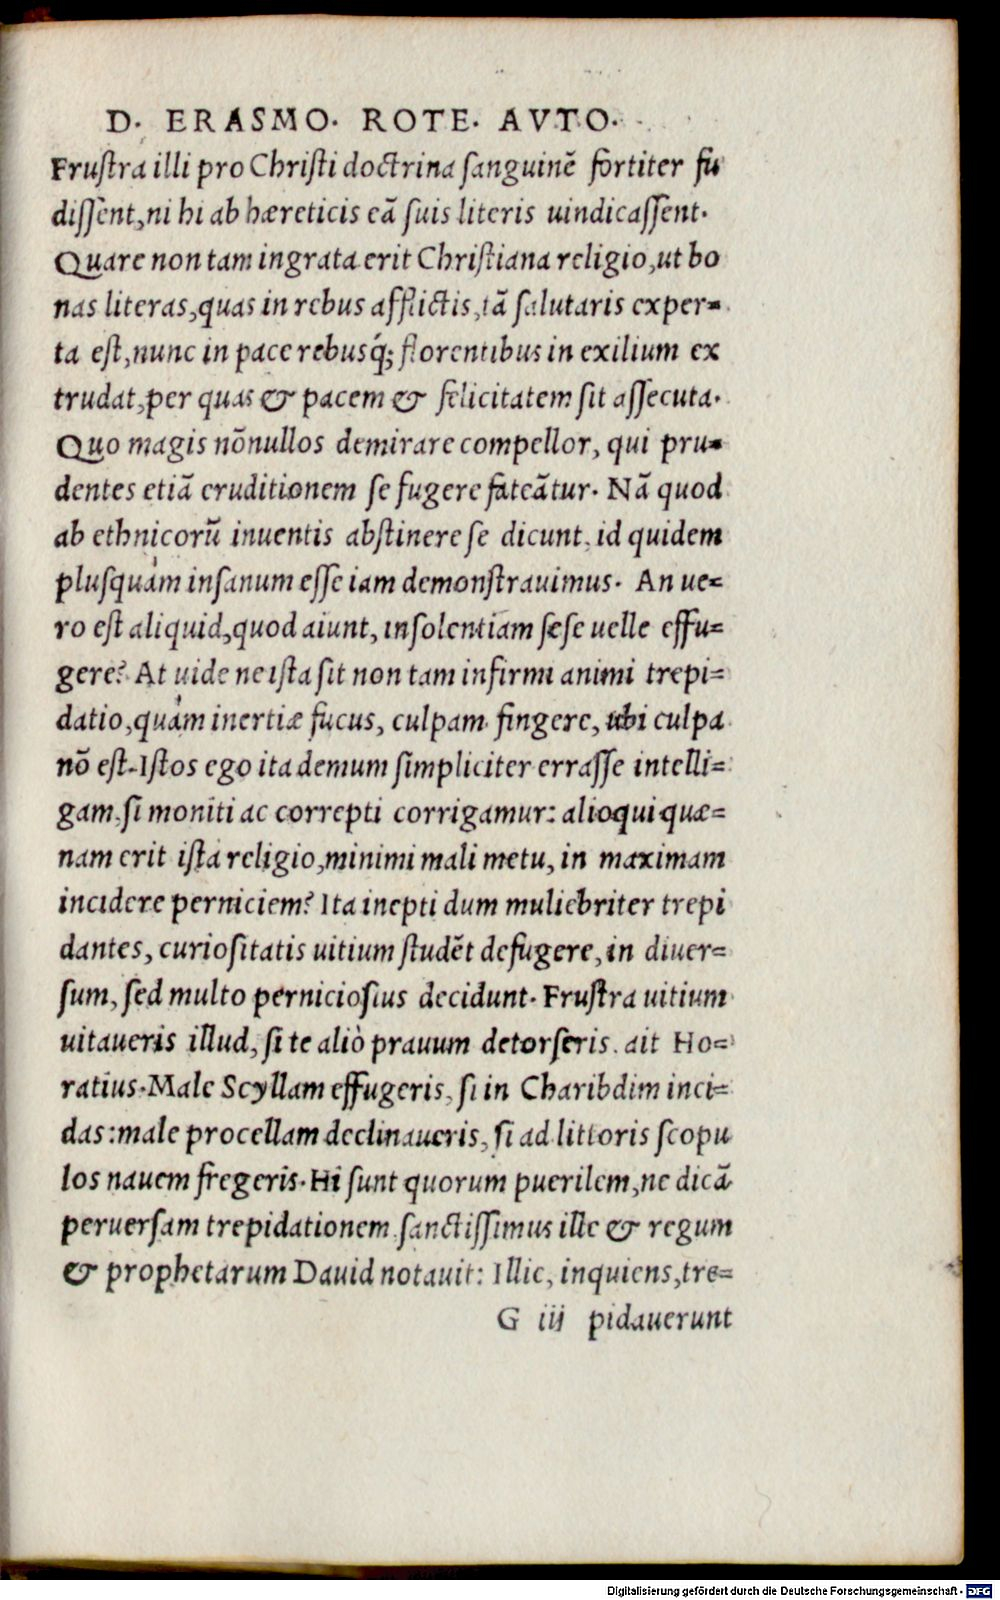 D. ERASMO. ROTE. AVTO.
Frustra illi pro Christi doctrina sanguinē fortiter fu
dissent, ni hi ab hæreticis eā suis literis uindicassent.
Quare non tam ingrata erit Christiana religio, ut bo
nas literas, quas in rebus afflictis, tā salutaris exper=
ta est, nunc in pace rebusq́; florentibus in exilium ex
trudat, per quas & pacem & felicitatem sit assecuta.
Quo magis nōnullos demirare compellor, qui pru=
dentes etiā eruditionem se fugere fateātur. Nā quod
ab ethnicorū inuentis abstinere se dicunt, id quidem
plusquàm insanum esse iam demonstrauimus. An ue=
ro est aliquid, quod aiunt, insolentiam sese uelle effu=
gere? At uide ne ista sit non tam infirmi animi trepi=
datio, quàm inertiæ fucus, culpam fingere, ubi culpa
nō est. Istos ego ita demum simpliciter errasse intelli=
gam, si moniti ac correpti corrigamur: alioqui quæ=
nam erit ista religio, minimi mali metu, in maximam
incidere perniciem? Ita inepti dum muliebriter trepi
dantes, curiositatis uitium studēt defugere, in diuer=
sum, sed multo perniciosius decidunt. Frustra uitium
uitaueris illud, si te aliò prauum detorseris. ait Ho=
ratius. Male Scyllam effugeris, si in Charibdim inci=
das: male procellam declinaueris, si ad littoris scopu
los nauem fregeris. Hi sunt quorum puerilem, ne dicā
peruersam trepidationem sanctissimus ille & regum
& prophetarum Dauid notauit: Illic, inquiens, tre=
G iii pidauerunt
Digitalisierung gefördert durch die Deutsche Forschungsgemeinschaft - DFG